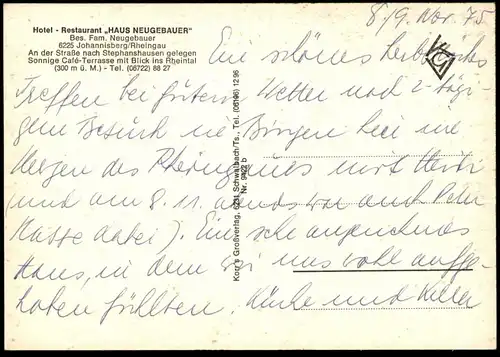 Hotel - Restaurant „HAUS NEUGEBAUER"
Bes. Fam. Neugebauer
6225 Johannisberg/Rheingau
An der Straße nach Stephanshausen gelegen
Sonnige Café-Terrasse mit Blick ins Rheintal
(300 m ü. M.) - Tel. (06722) 88 27
8./9. Nov. 75
Ein schönes herbstliches
Treffen bei gutem Wetter und 2-tägi-
gem Besuch in Bingen hier im
Herzen des Rheingaues mit Herbi
(und am 8.11. abends war auch Peter
dabei). Ein sehr angenehmes
Haus, in dem wir uns wohl aufge-
hoben fühlten. Küche und Keller
Korr's Großverlag, 6231 Schwalbach/Ts., Tel. (06196) 12 96
Nr. 9422 b